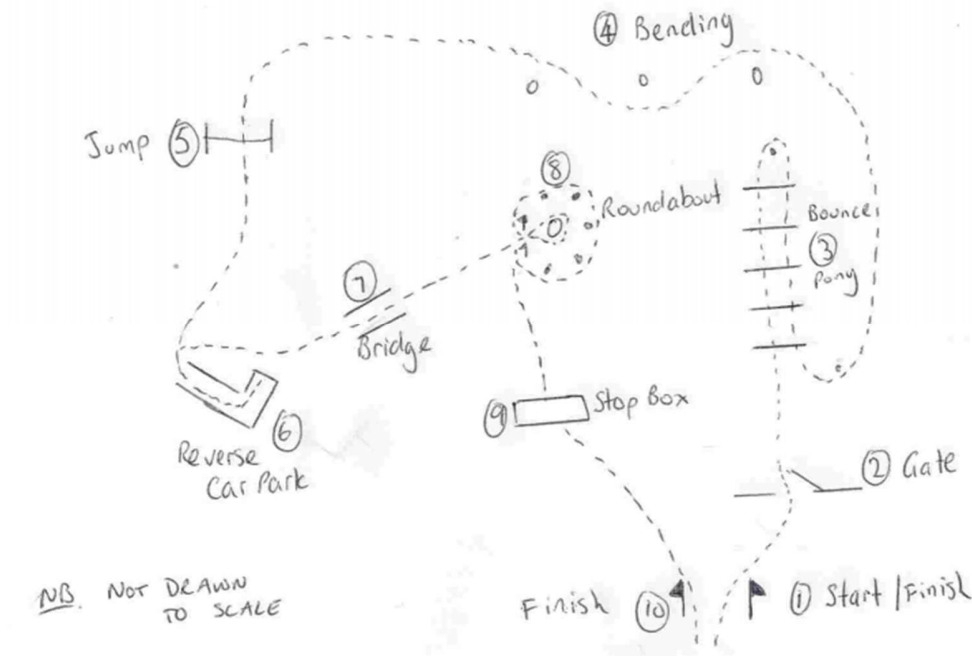 ④ Bending
Jump ⑤
⑧
Roundabout
Bounce
③
Pony
⑦
Bridge
⑨ Stop Box
⑥
Reverse
Car Park
② Gate
NB. NOT DRAWN
TO SCALE
Finish ⑩
① Start/Finish